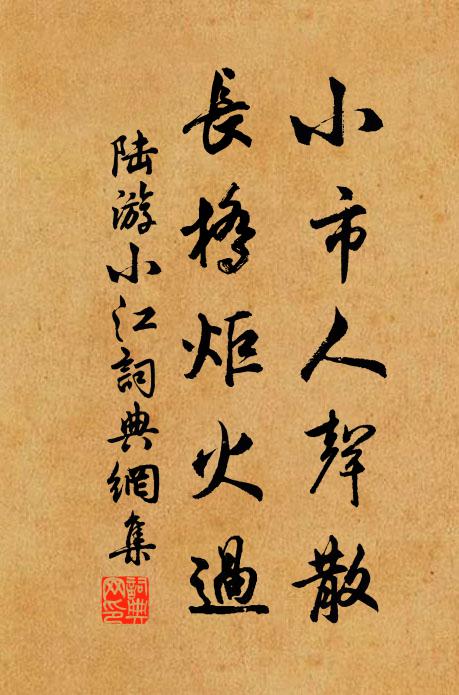 小市人聲散
長橋炬火過
陸游小江詞典網集
詞典网印